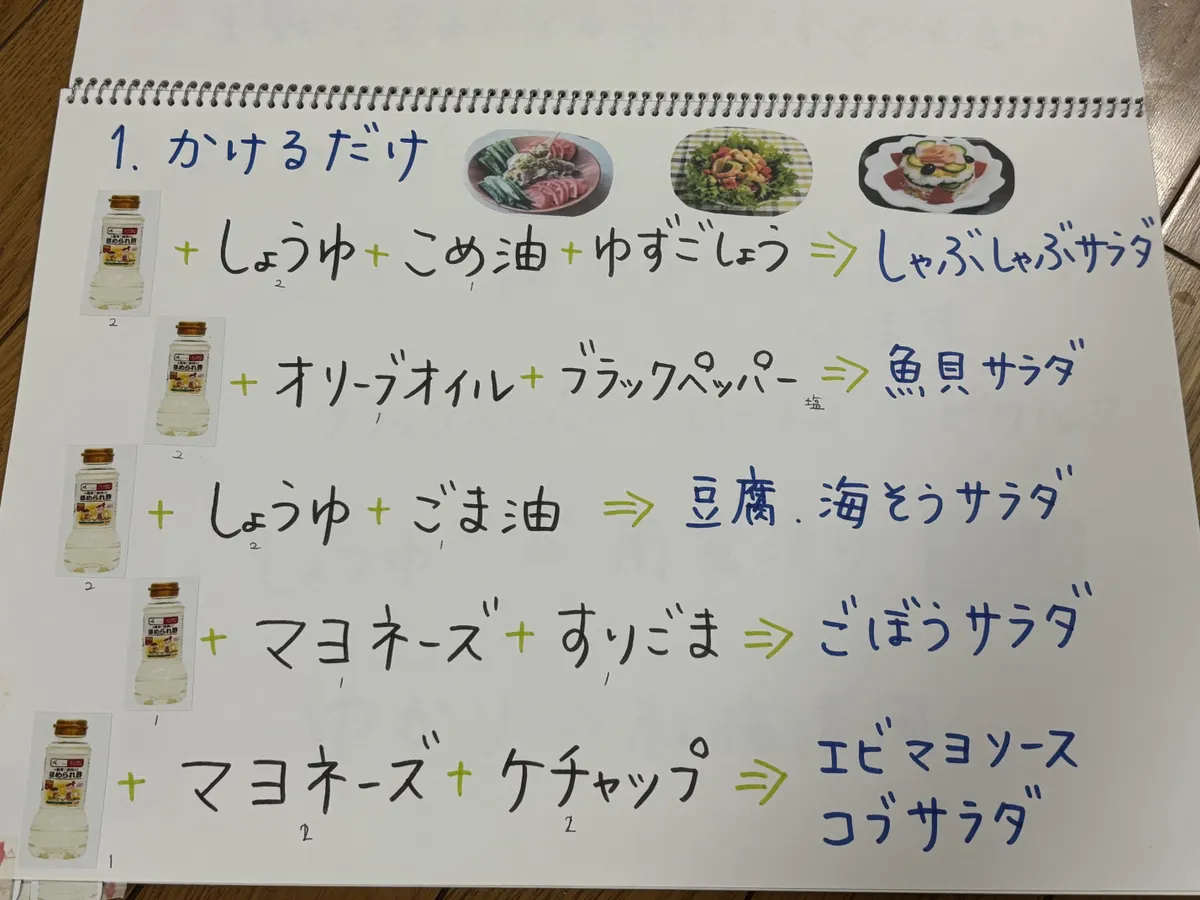 1. かけるだけ
ほめられ酢 + しょうゆ + こめ油 + ゆずごしょう ⇒ しゃぶしゃぶサラダ
2 2 1
ほめられ酢 + オリーブオイル + ブラックペッパー 塩 ⇒ 魚貝サラダ
2 1
ほめられ酢 + しょうゆ + ごま油 ⇒ 豆腐.海そうサラダ
2 2 1
ほめられ酢 + マヨネーズ + すりごま ⇒ ごぼうサラダ
1 1 1
ほめられ酢 + マヨネーズ + ケチャップ ⇒ エビマヨソース
コブサラダ
1 2 2